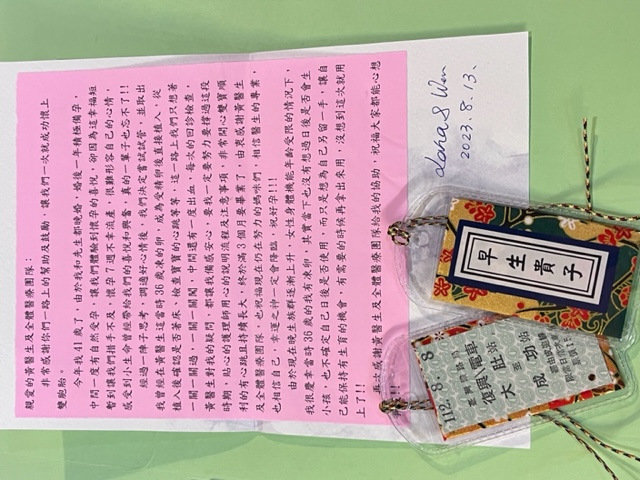 親愛的黃醫生及全體醫療團隊：
非常感謝你們一路上的幫助及鼓勵，讓我們一次就成功懷上
雙胞胎。
今年我41歲了，由於我和先生都晚婚，婚後一年積極備孕，
中間一度有自然受孕，讓我們體驗到懷孕的喜悅，卻因為這幸福短
暫到讓我們措手不及，懷孕7週不幸流產，很難形容自己的心情，
感受到小生命曾經帶給我們的喜悅和興奮，真的一輩子也忘不了!!
經過一陣子思考，調適好心情後，我們決定嘗試試管，並取出
我曾經在黃醫生這當時36歲凍的卵，成為受精卵後直接植入，從
植入後確認是否著床、檢查寶寶的心跳等等，這一路上我們只想著
一關一關過，一關一關闖，中間還有一度出血，每次的回診檢查，
黃醫生對我的疑問，都讓我備感安心，要我一定要努力要撐過這段
時期，貼心的護理師用心的說明流程及注意事項，非常開心雙寶順
利的有心跳且持續長大，終於滿3個月要畢業了，由衷感謝黃醫生
及全體醫療團隊，也祝福現在仍在努力的媽咪們，相信醫生的專業，
也相信自己，幸運之神一定會降臨，祝好孕!!!
由於現在晚生族群逐漸上升，女性身體機能年齡受限的情況下，
我很慶幸當時36歲的我有凍卵，其實當下也沒有想過日後是否會生
小孩，也不確定自己日後是否使用，而只是想為自己另留一手，讓自
己能保持有生育的機會，有需要的時候再拿出來用，沒想到這次就用
上了!!
再次感謝黃醫生及全體醫療團隊給我的協助，祝福大家都能心想
!!
Wen
2023.8.13.
112.8.8
臺灣鐵路局
復興\電車
大肚站
至
成功站
限當日
早生貴子